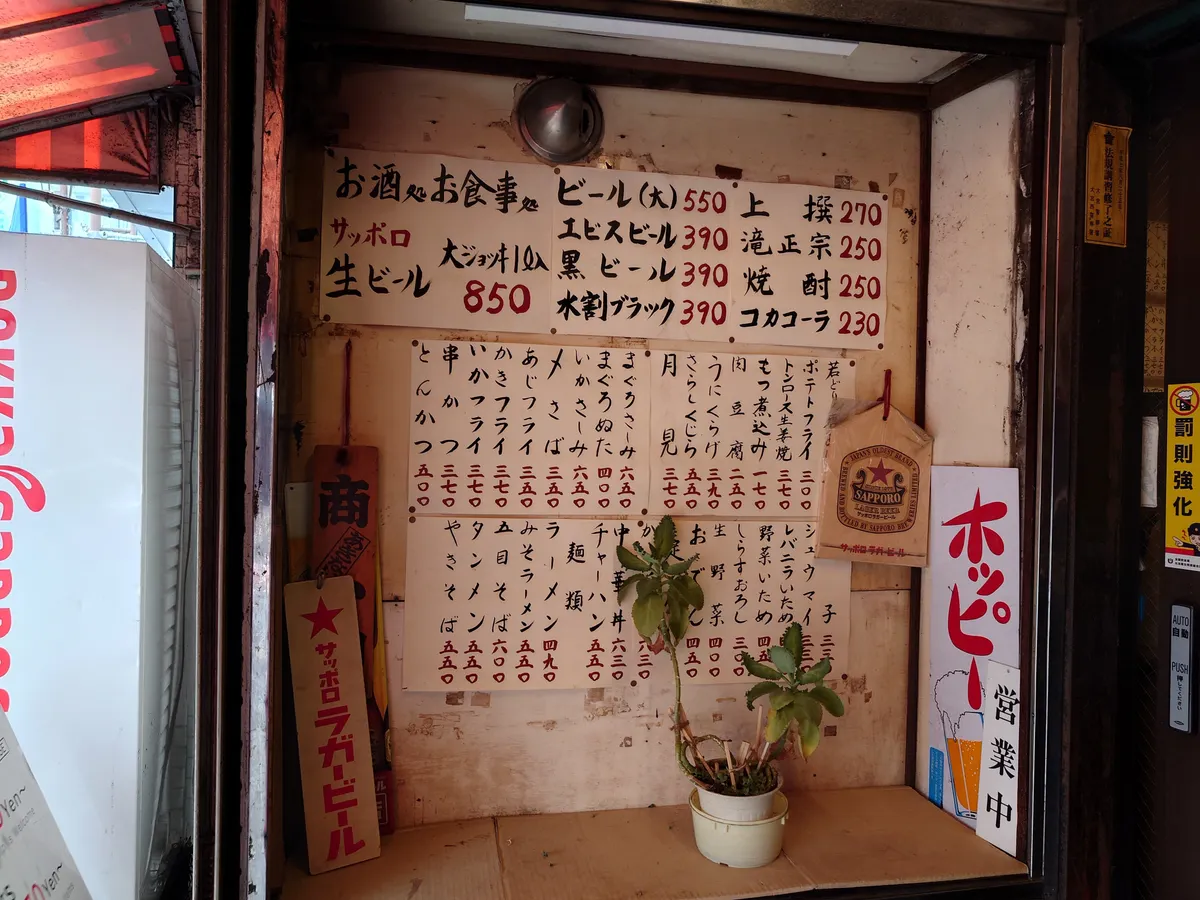 お酒処お食事処
サッポロ
生ビール
大ジョッキ1ℓ入
850
ビール(大)550
エビスビール390
黒ビール390
水割ブラック390
上撰270
滝正宗250
焼酎250
コカコーラ230
若どり
ポテトフライ
トンロース生姜焼
もつ煮込み
肉豆腐
うにくらげ
さらしくじら
月見
まぐろさしみ
まぐろぬた 四〇〇
いかさしみ 六五〇
〆さば 三五〇
あじフライ 三五〇
かきフライ 三七〇
いかフライ 三七〇
串かつ 三七〇
とんかつ 五〇〇
シュウマイ
レバニラいため
野菜いため
しらすおろし
生野菜
おでん
中華丼 六三〇
チャーハン 五五〇
麺類
ラーメン 四九〇
みそラーメン 五五〇
五目そば 六〇〇
タンメン 五五〇
やきそば 五五〇
商
サッポロラガービール
SAPPORO
LAGER BEER
サッポロラガービール
ホッピー
営業中
罰則強化
AUTO
自動
PUSH
押してください